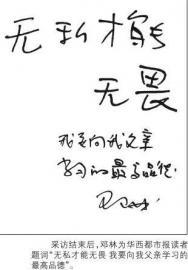 无私才能
无畏
我要向我父亲
学习的最高品德.
邓林
采访结束后，邓林为华西都市报读者
题词“无私才能无畏 我要向我父亲学习的
最高品德”。